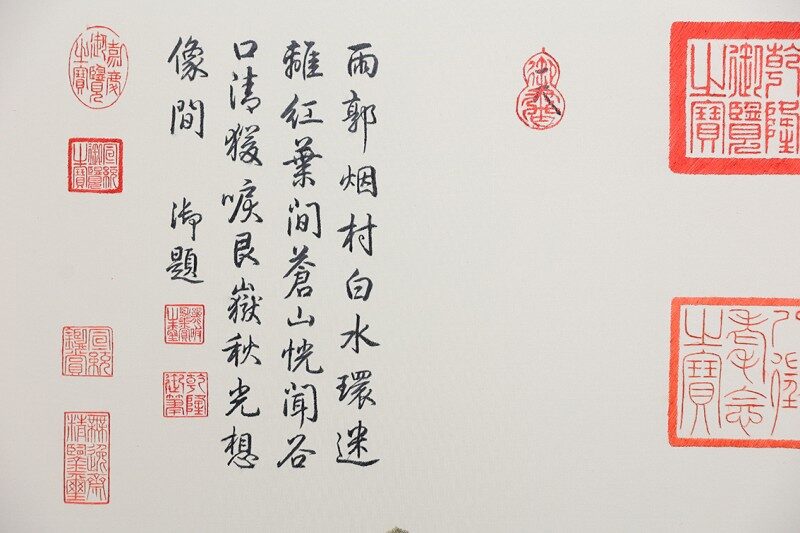 乾隆御覽之寶
八徵耄念之寶
雨郭烟村白水環迷
離紅葉間蒼山恍聞谷
口清猨唳艮嶽秋光想
像間 御題
乾隆御筆
嘉慶御覽之寶
宣統御覽之寶
宣統鑑賞
無逸齋精鑒璽